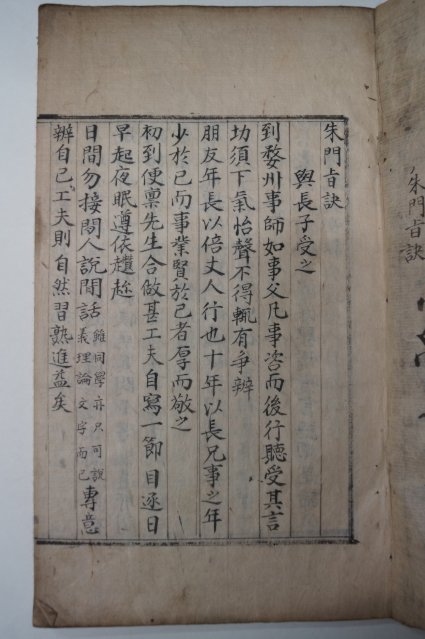 朱門旨訣
朱門旨訣
與長子受之
到婺州事師如事父凡事咨而後行聽受其言
切須下氣怡聲不得輒有爭辨
朋友年長以倍丈人行也十年以長兄事之年
少於己而事業賢於己者厚而敬之
初到便稟先生合做甚工夫自寫一節目逐日
早起夜眠遵依趲趂
日間勿接閒人說閒話雖同學亦只可說義理論文字而已專意
辨自己工夫則自然習熟進益矣